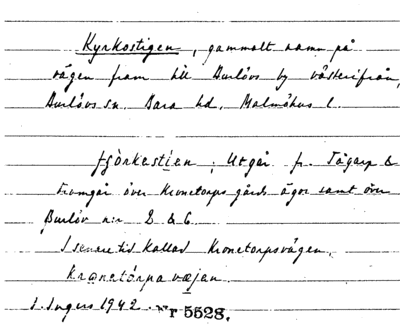 Kyrkostigen, gammalt namn på
vägen fram till Burlövs by västerifrån,
Burlövs sn. Bara hd, Malmöhus l.
Utgår fr. Tågarp &
framgår över Kronetorps gårds ägor samt över
Burlöv n:r 2 & 6.
I senare tid kallad Kronetorpsvägen.
I. Ingers 1942. Nr 5528.